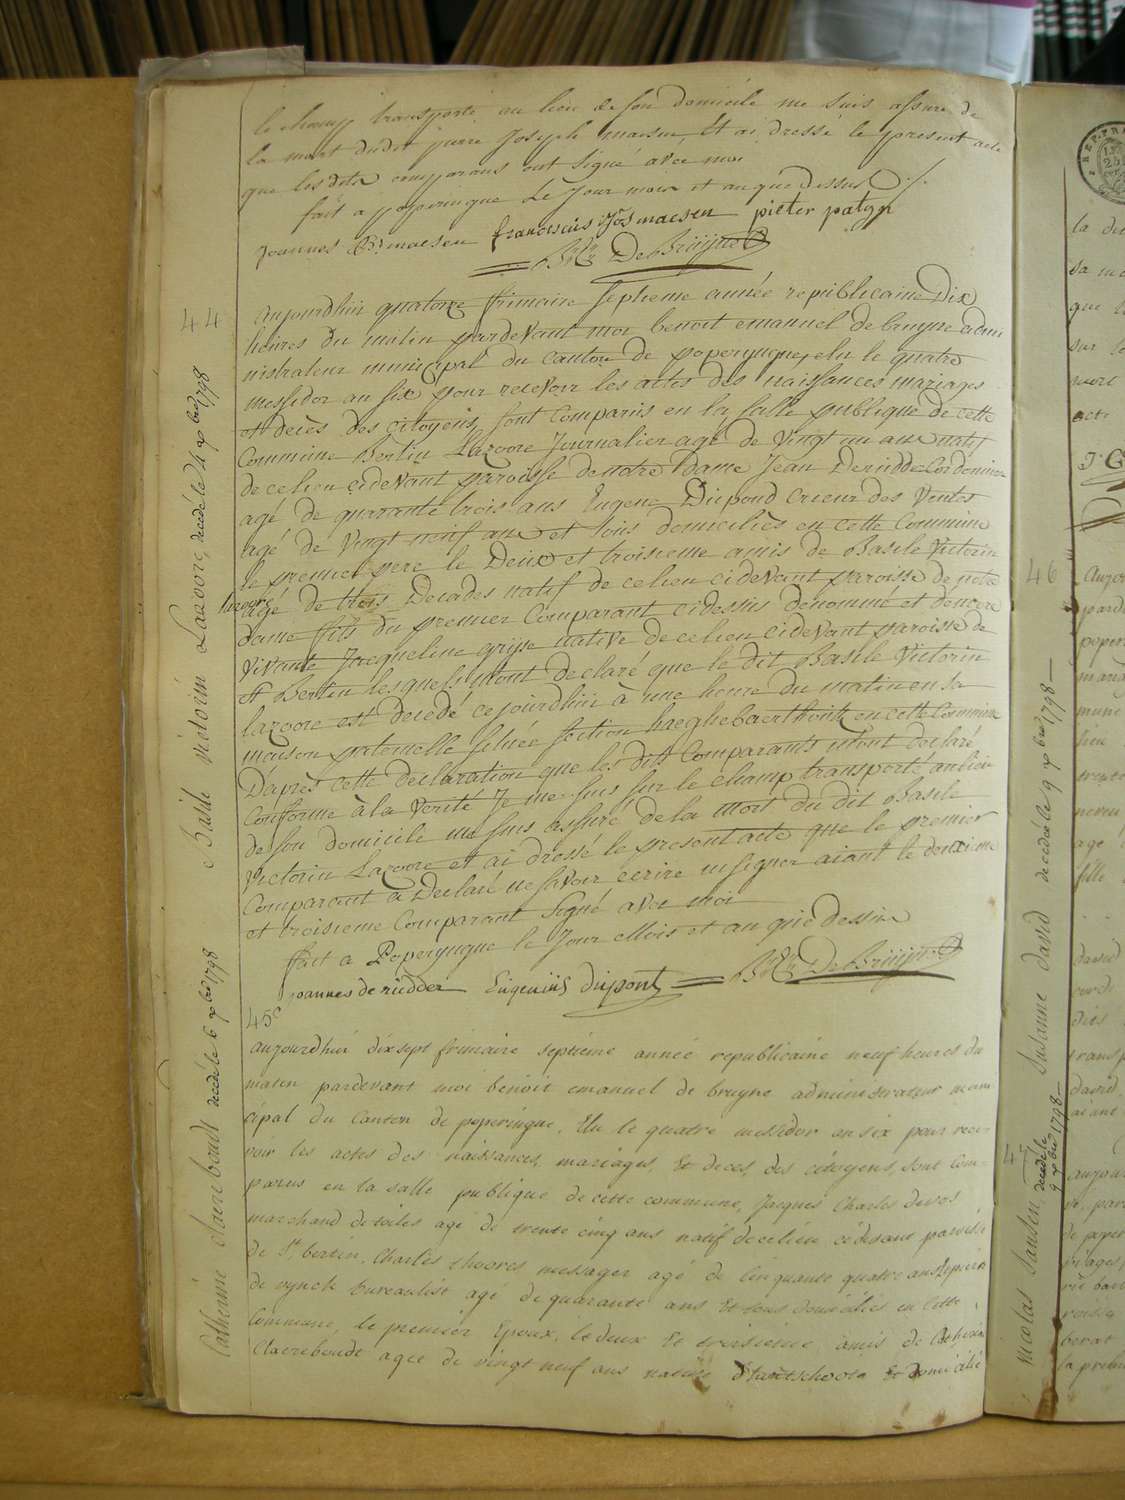 le champ transporté au lieu de son domicile me suis assuré de
la mort dudit pierre Joseph maesen Et ai dressé le present acte
que les dits comparans ont signé avec moi
fait a poperingue le Jour mois et an que dessus
Joannes Bt maesen franciscus Jos maesen pieter patyn
De Bruyne
44
Aujourdhui quatorze frimaire septieme année republicaine Dix
heures du matin pardevant moi benoit emanuel de bruyne admi
nistrateur municipal du canton de poperyngue, elu le quatre
messidor an six pour recevoir les actes des naissances mariages
et decès des citoyens, sont Comparus en la salle publique de cette
Commune Bertin Lazoore Journalier agé de Vingt un ans natif
de ce lieu cidevant paroisse de notre Dame Jean Deridder Cordonnier
agé de quarante trois ans Eugene Dupond crieur des Ventes
agé de Vingt neuf ans et tous domiciliès en cette Commune
le premier pere le Deux et troisieme amis de Basile Victorin
Lazoore agé de trois Decades natif de ce lieu cidevant paroisse de notre
dame fils du premier Comparant cidessus denommé et dencore
Vivante Jacqueline gryse native de ce lieu cidevant paroisse de
St Bertin lesquels mont declaré que le dit Basile Victorin
lazoore est decedé ce jourdhui à une heure du matin en sa
maison paternelle située section haeghebaerthouk en cette Commune
D'après cette declaration que les dits Comparants mont declaré
Conforme à la Verité Je me suis sur le champ transporté au lieu
de son domicile me suis assuré de la mort du dit Basile
Victorin Lazoore et ai dressé le present acte que le premier
Comparant a Declaré ne savoir ecrire ni signer aiant le deuxieme
et troisieme Comparant signé avec moi
fait a Poperyngue le Jour Mois et an que dessus
joannes de ridder Eugenius dupont De Bruyne
45e
Aujourdhui dix sept frimaire septieme année republicaine neuf heures du
matin pardevant moi benoit emanuel de bruyne administrateur muni
cipal du Canton de poperingue, Elu le quatre messidor an six pour rece
voir les actes des naissances, mariages, Et deces, des citoyens, sont Com
parus en la salle publique de cette commune, Jacques Charles devos
marchand de toiles agé de trente cinq ans natif de ce lieu cidevant paroisse
de St bertin, Charles messager agé de Cinquante quatre ans
de rynck Bureaulist agé de quarante ans Et tous domiciliés en cette
Commune, le premier Epoux, le deux Et troisieme amis de Catherine
Clacreboudt agee de vingt neuf ans native d'haentschoote Et domicilié
Basile victorin Lazoore, decedé le 4 xbre 1798
Catherine Claereboudt decedé le 6 xbre 1798
46
Susanne david decedée le 9 xbre 1798
47
Nicolas Sansen decedé le
9 xbre 1798